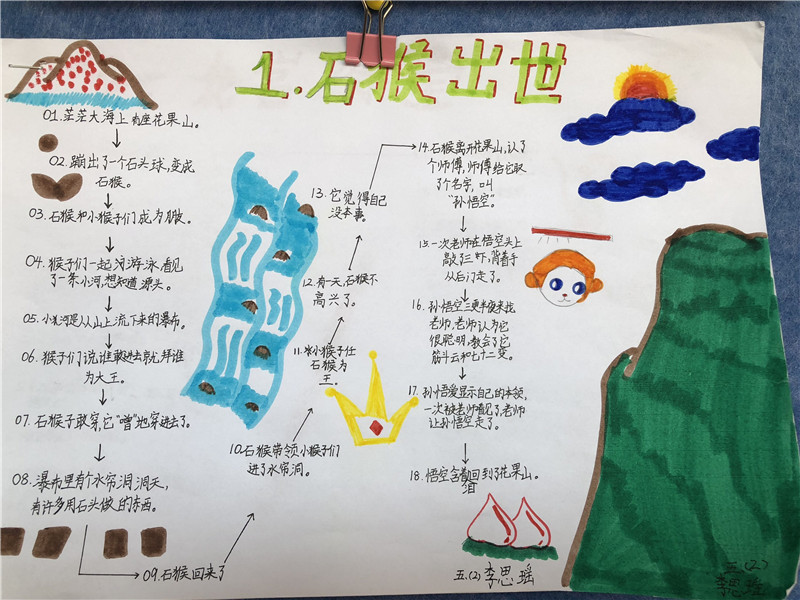 1.石猴出世
01.茫茫大海上有座花果山。
02.蹦出了一个石头球,变成
石猴。
03.石猴和小猴子们成为朋友。
04.猴子们一起河游泳,看见
了一条小河,想知道源头。
05.小河是从山上流下来的瀑布。
06.猴子们说谁敢进去就拜谁
为大王。
07.石猴子敢穿,它"噌"地穿进去了。
08.瀑布里有个水帘洞洞天,
有许多用石头做的东西。
09.石猴回来了
10.石猴带领小猴子们
进了水帘洞。
11.小猴子任
石猴为
王。
12.有一天,石猴不
高兴了。
13.它觉得自己
没本事。
14.石猴离开花果山,认了
个师傅,师傅给它取
了个名字,叫
"孙悟空"。
15.一次老师在悟空头上
敲了三下,背着手
从后门走了。
16.孙悟空三更半夜来找
老师,老师认为它
很聪明,教会了它
筋斗云和七十二变。
17.孙悟爱显示自己的本领,
一次被老师看见了,老师
让孙悟空走了。
18.悟空含着泪回到了花果山。
五.(2) 李思瑶
五(2)
李思瑶